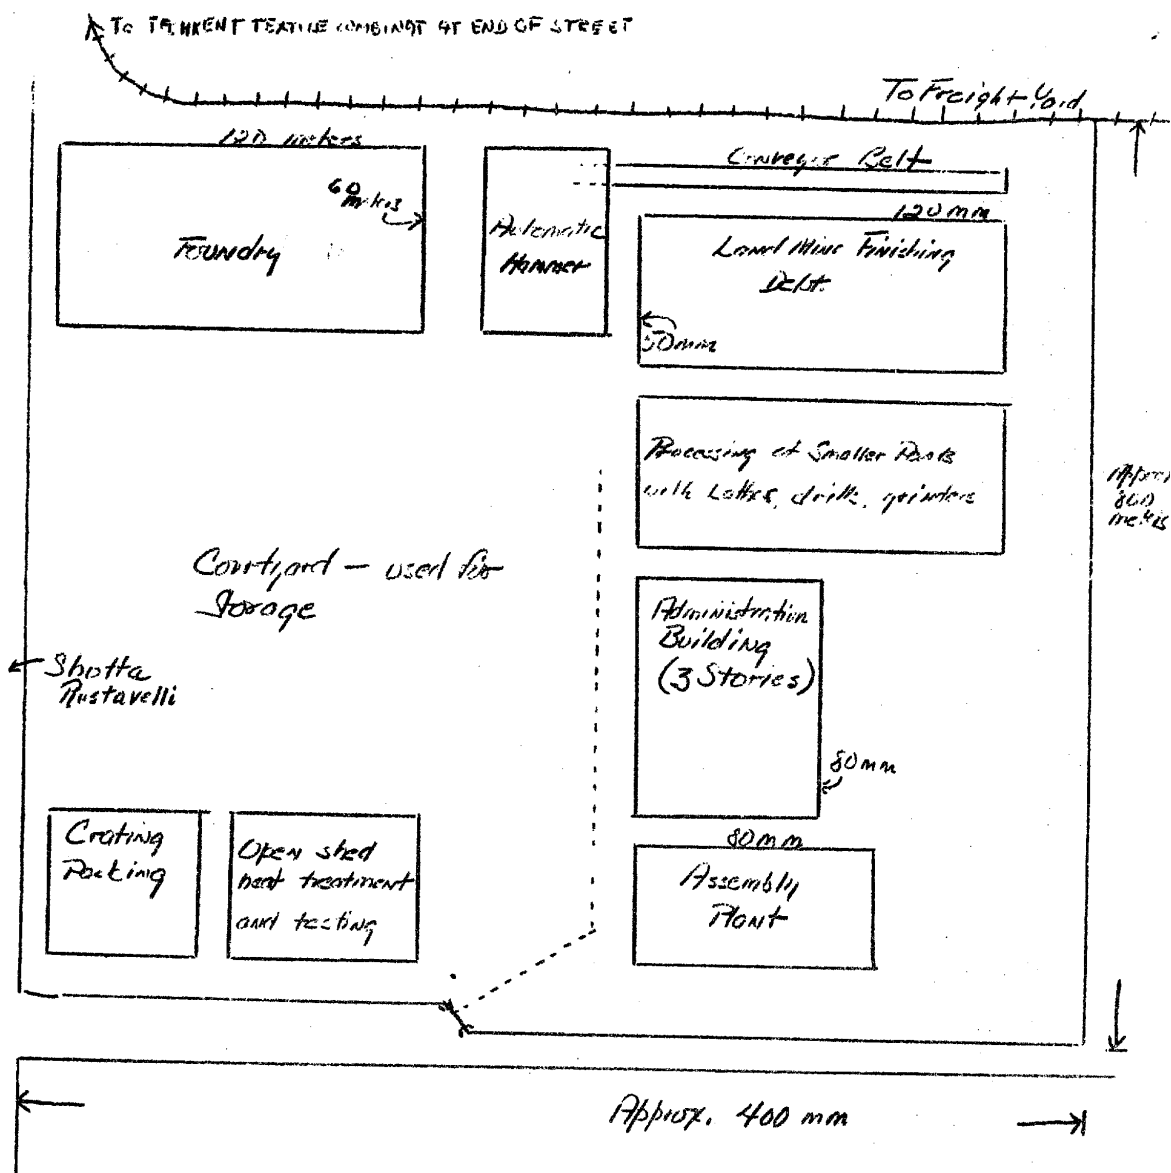 To TASHKENT TEXTILE COMBINAT AT END OF STREET
To Freight Yard
120 meters
Conveyor Belt
60
meters
120 mm
Automatic
Hammer
Foundry
Land Mine Finishing
Dept.
50mm
Processing of Smaller Parts
with Lathes, drills, grinders
Approx
800
meters
Courtyard — used for
Storage
Administration
Building
(3 Stories)
Shotta
Rustavelli
80mm
80mm
Crating
Packing
Open shed
heat treatment
and testing
Assembly
Plant
Approx. 400 mm